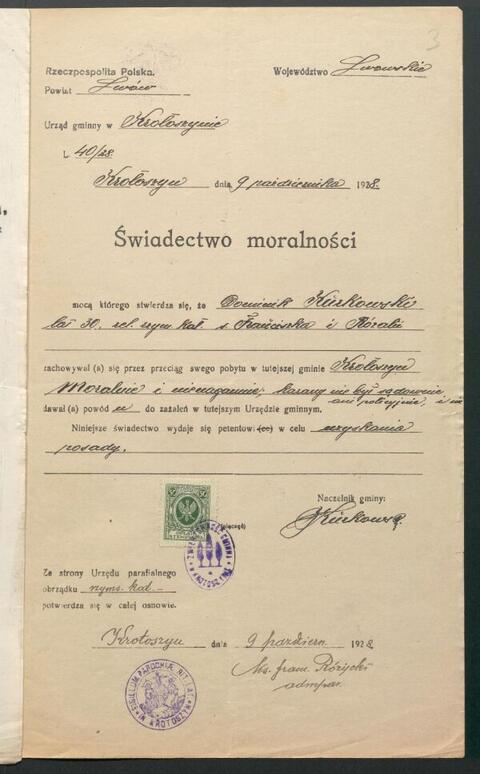 3
Rzeczpospolita Polska. Województwo Lwowskie
Powiat Lwów
Urząd gminny w Krotoszynie
L. 40/28.
Krotoszyn dnia 9 października 1928.
Świadectwo moralności
mocą którego stwierdza się, że Dominik Kurkowski
lat 30. rel. rzym. kat. s. Franciszka i Rozalii
zachowywał (a) się przez przeciąg swego pobytu w tutejszej gminie Krotoszyn
Moralnie i nienagannie, karany nie był sądownie
ani policyjnie, i nie
dawał (a) powód u do zażaleń w tutejszym Urzędzie gminnym.
Niniejsze świadectwo wydaje się petentowi (ce) w celu uzyskania
posady.
Naczelnik gminy:
(pieczęć)
Kurkowski
Ze strony Urzędu parafialnego
obrządku rzyms. kat.
potwierdza się w całej osnowie.
Krotoszyn dnia 9 październ. 1928
Ks. Franc. Różycki
admpar.
SIGILLUM PAROCHIAE RIT. LAT. IN KROTOSZYN